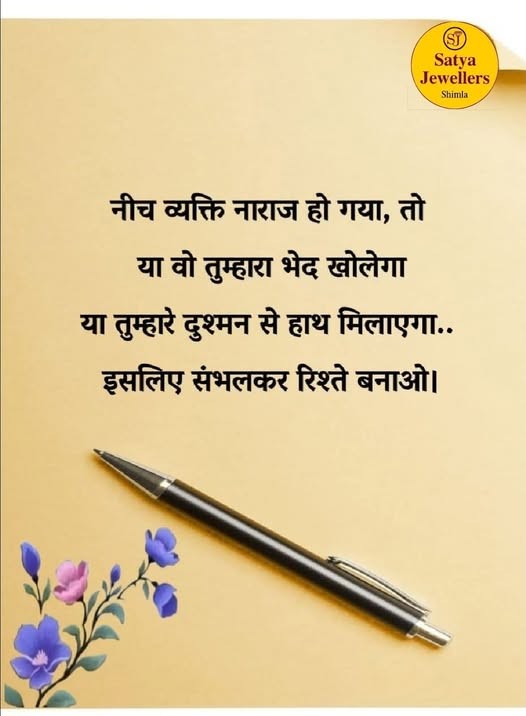 SJ
Satya
Jewellers
Shimla
नीच व्यक्ति नाराज हो गया, तो
या वो तुम्हारा भेद खोलेगा
या तुम्हारे दुश्मन से हाथ मिलाएगा..
इसलिए संभलकर रिश्ते बनाओ।